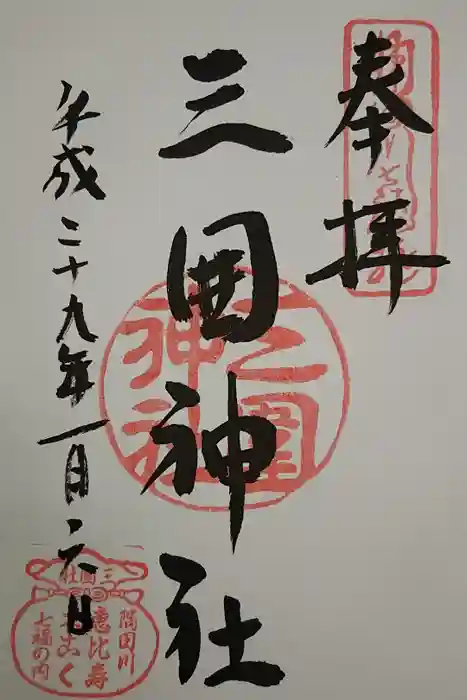 奉拝
三囲神社
三圍神社
平成二十九年一月六日
三囲社
隅田川
恵比寿
大こく
七福の内